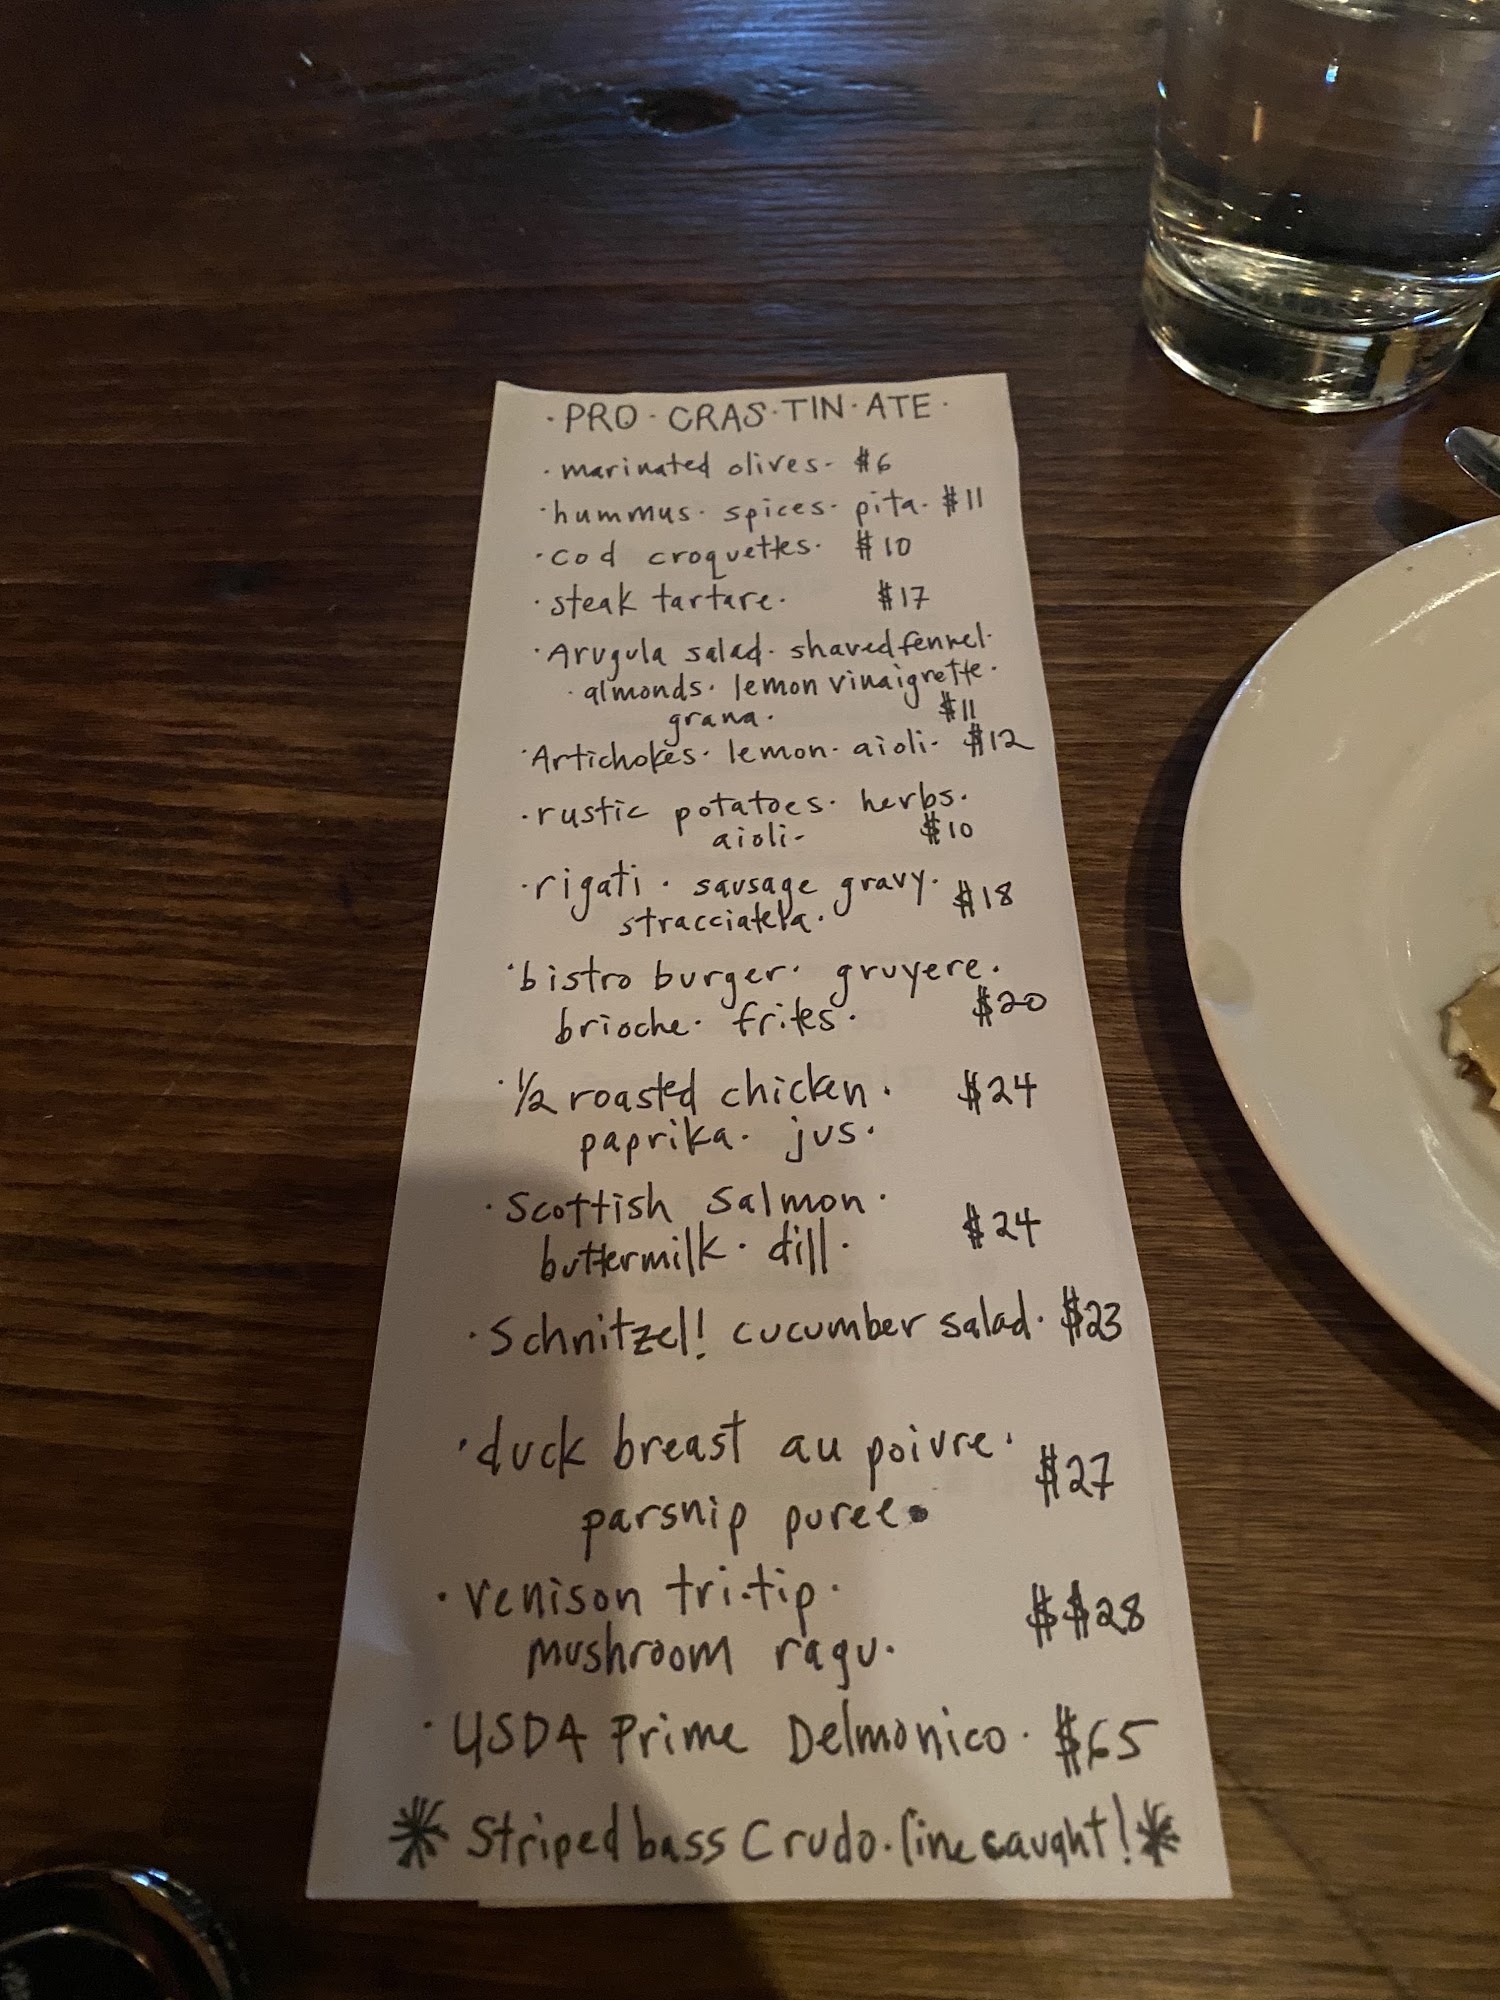 · PRO · CRAS · TIN · ATE ·
· marinated olives · $6
· hummus · spices · pita · $11
· cod croquettes · $10
· steak tartare · $17
· Arugula salad · shaved fennel ·
· almonds · lemon vinaigrette ·
grana · $11
· Artichokes · lemon · aioli · $12
· rustic potatoes · herbs ·
aioli - $10
· rigati · sausage gravy · $18
stracciatella ·
· bistro burger · gruyere ·
brioche · frites · $20
· 1/2 roasted chicken · $24
paprika · jus ·
· Scottish Salmon ·
buttermilk · dill · $24
· Schnitzel! cucumber salad · $23
· duck breast au poivre · $27
parsnip puree ·
· Venison tri-tip · $$28
mushroom ragu ·
· USDA Prime Delmonico · $65
* Striped bass Crudo · line caught! *